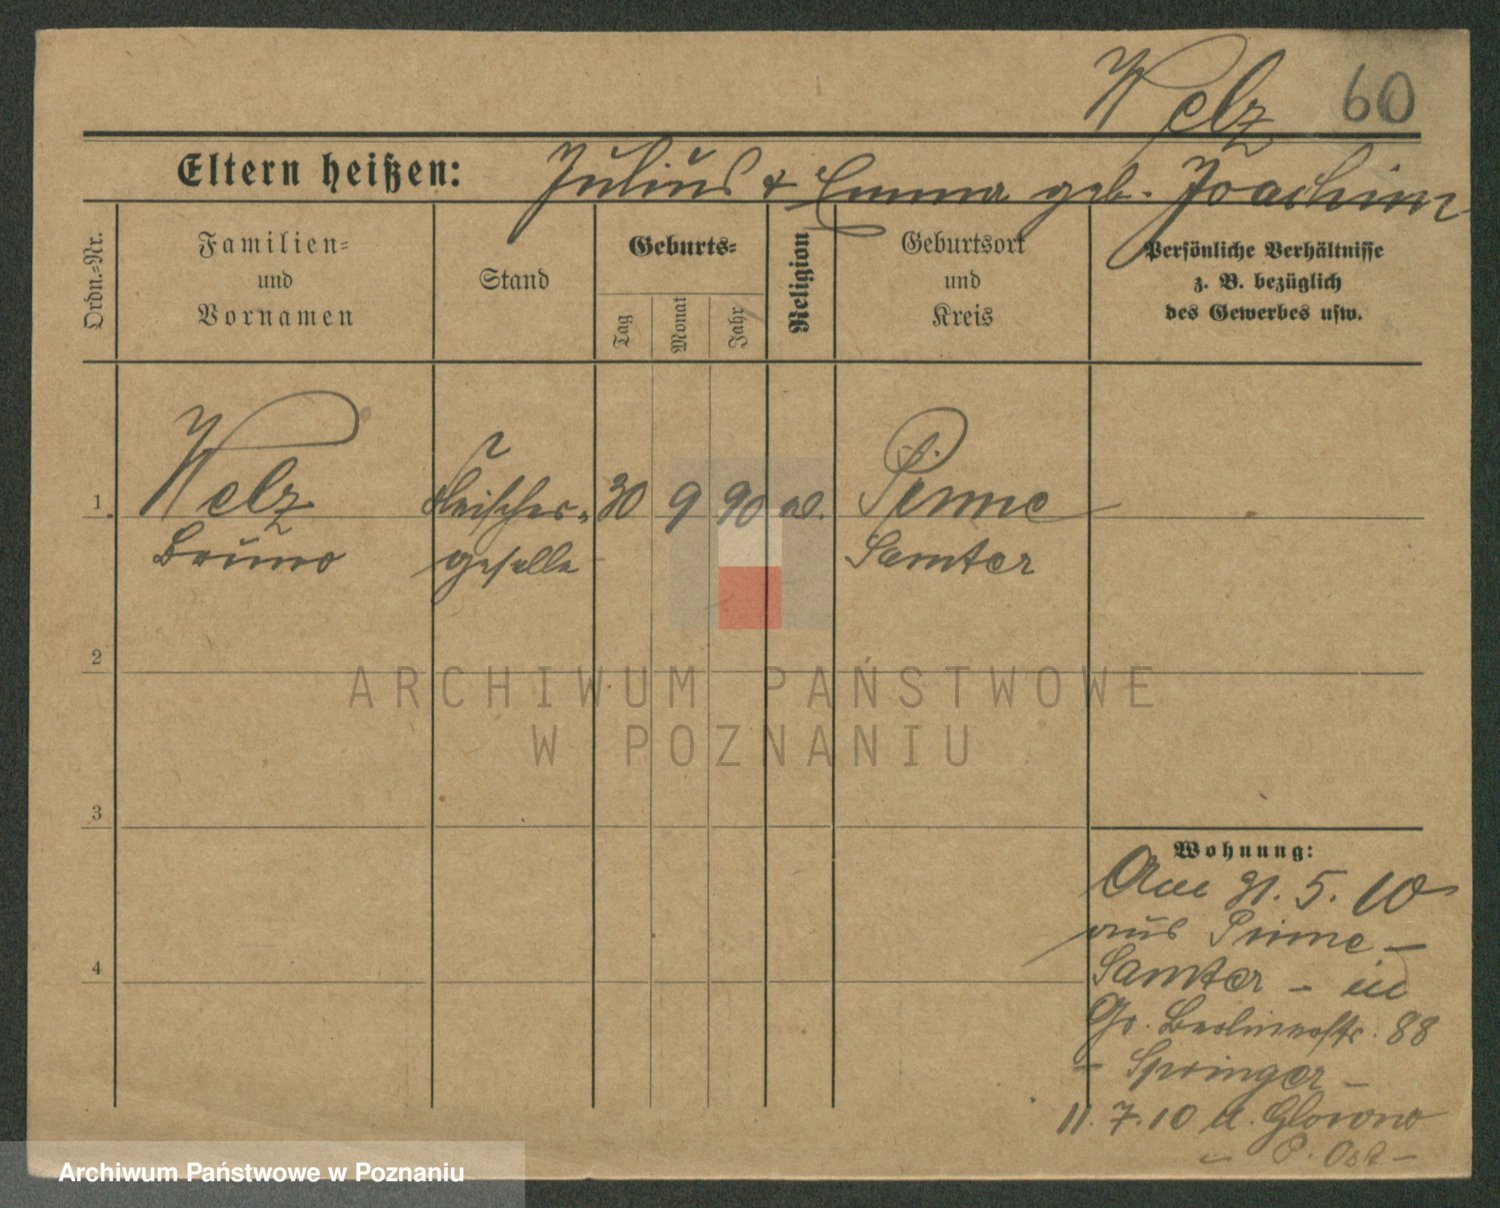 Welz 60
Eltern heißen: Julius & Emma geb. Joachim
Ordn.-Nr.
Familien-
und
Vornamen
Stand
Geburts-
Tag
Monat
Jahr
Religion
Geburtsort
und
Kreis
Persönliche Verhältnisse
z. B. bezüglich
des Gewerbes usw.
1 Welz Fleischer- 30 9 90 Pinne
Bruno geselle Samter
2
3
4
Wohnung:
Am 31. 5. 10
aus Pinne -
Samter - in
Gr. Berlinerstr. 88
- Springer -
11. 7. 10 n. Glowno
- P. Ost -
ARCHIWUM PAŃSTWOWE
W POZNANIU
Archiwum Państwowe w Poznaniu